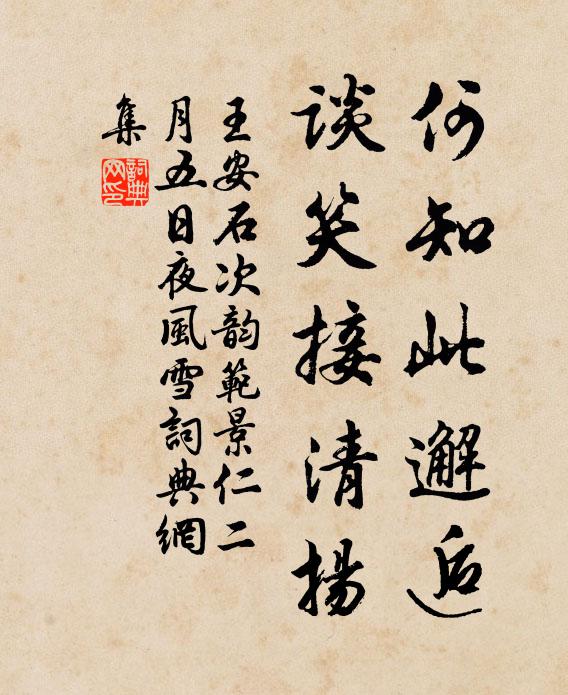 何知此邂逅
談笑接清揚
王安石次韵範景仁二
月五日夜風雪詞典網
集
詞典
网印